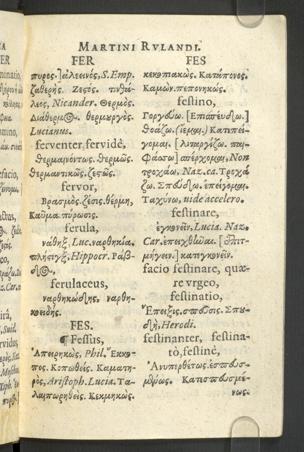 MARTINI RVLANDI.
FER
πυρος.] ἀλεεινός, S. Emp.
ζαθερής. Ζεςτς. τινθαλέος, Nicander. Θερμός.
Διάθερμος. θερμουργός.
Lucianus.
feruenter, feruidè,
Θερμαινόντως. Θερμῶς.
Θερμαντικῶς. ζεςῶς.
feruor,
Βρασμός. ζέσις. θέρμη.
Καῦμα. πύρωσις.
ferula,
νάθηξ. Luc. ναρθηκία.
Hippocr. Ράβδος.
ferulaceus,
ναρθηκώδης. ναρθηκοειδής.
FES.
¶ Fessus,
Ἀπειρηκώς, Phil. Ἔκκοπος. Κοπωθείς. Καματηρὸς, Aristoph. Lucia. Ταλαιπωρηθείς. Κεκμηκώς.
FES
κεκοπιακώς. Κατάπονος.
Καμών. πεπονηκώς.
festino,
Γοργόω. [Επισπεύδω.]
θοάζω. (ἱεμαι.) Κατεπείγομαι.
ἀπέρχομαι, Non
τροχάω, Naz. ca. Τροχάζω. Σπεύδω. ἐπείγομαι.
Ταχύνω, uide accelero.
festinare,
ἐγκονεῖν, Lucia. Naz.
Car. ἐπειχθῆναι.
κατηγονεῖν.
facio festinare, quære vrgeo,
festinatio,
Ἔπειξις, σπεῦσις. Σπουδή, Herodi.
festinanter, festinatò, festinè,
Ἀνυπερθέτως. ἐσπουσμένως. Κατεσπουσμένως.